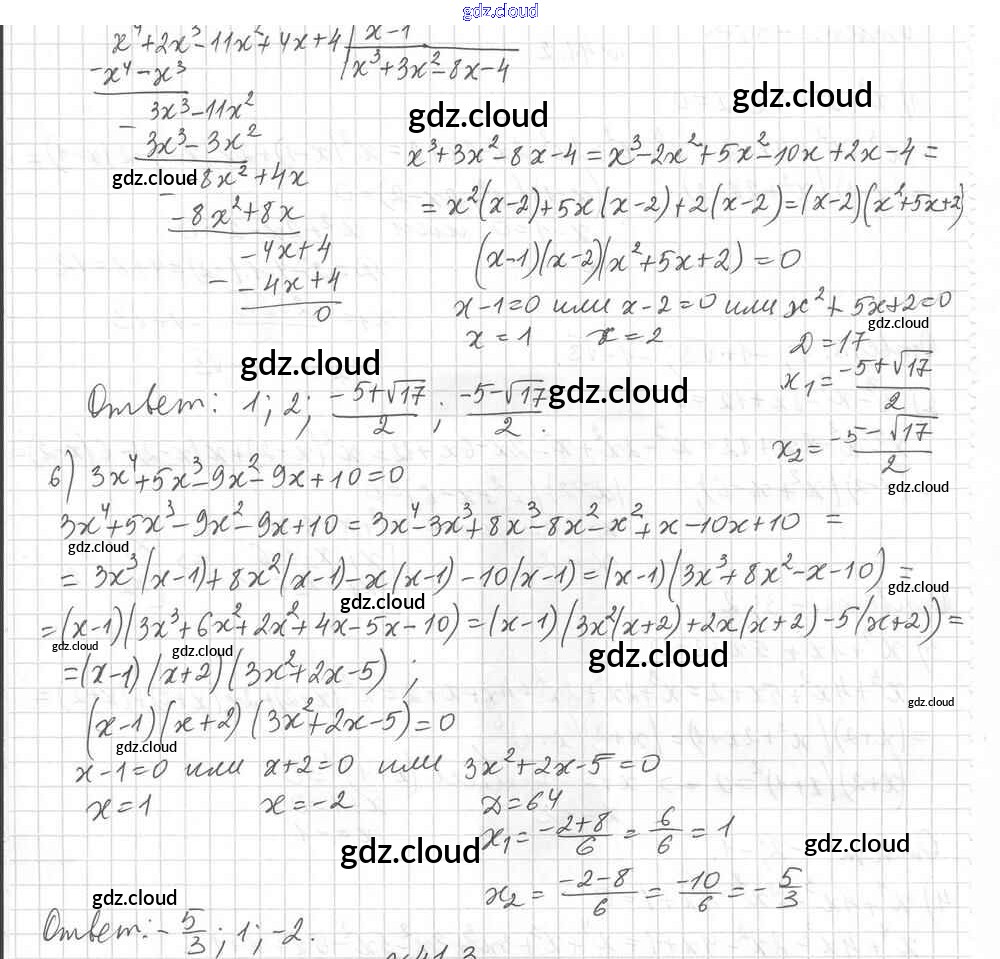 gdz.cloud
x⁴+2x³-11x²+4x+4 | x-1
-x⁴-x³ | x³+3x²-8x-4
3x³-11x²
- 3x³-3x²
gdz.cloud gdz.cloud
x³+3x²-8x-4=x³-2x²+5x²-10x+2x-4=
gdz.cloud
- -8x²+4x
-8x²+8x
=x²(x-2)+5x(x-2)+2(x-2)=(x-2)(x²+5x+2)
-4x+4
- -4x+4
0
(x-1)(x-2)(x²+5x+2)=0
x-1=0 или x-2=0 или x²+5x+2=0
gdz.cloud
x=1 x=2 D=17
gdz.cloud gdz.cloud
x₁=(-5+√17)/2
Ответ: 1; 2; (-5+√17)/2; (-5-√17)/2.
x₂=(-5-√17)/2
gdz.cloud
б) 3x⁴+5x³-9x²-9x+10=0
3x⁴+5x³-9x²-9x+10=3x⁴-3x³+8x³-8x²-x²+x-10x+10=
gdz.cloud
=3x³(x-1)+8x²(x-1)-x(x-1)-10(x-1)=(x-1)(3x³+8x²-x-10)=
gdz.cloud gdz.cloud
=(x-1)(3x³+6x²+2x²+4x-5x-10)=(x-1)(3x²(x+2)+2x(x+2)-5(x+2))=
gdz.cloud gdz.cloud gdz.cloud
=(x-1)(x+2)(3x²+2x-5);
gdz.cloud
(x-1)(x+2)(3x²+2x-5)=0
gdz.cloud
x-1=0 или x+2=0 или 3x²+2x-5=0
x=1 x=-2 D=64
x₁=(-2+8)/6=6/6=1
gdz.cloud gdz.cloud
x₂=(-2-8)/6=-10/6=-5/3
gdz.cloud
Ответ: -5/3; 1; -2.